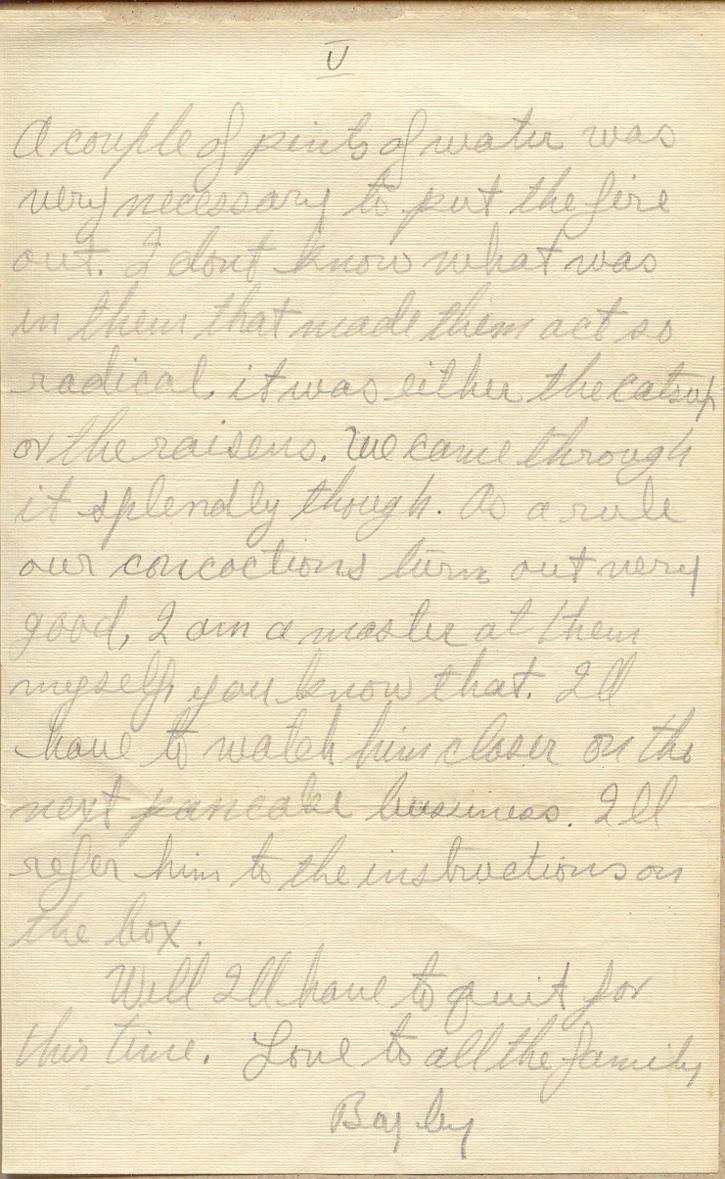 V
A couple of pints of water was
very necessary to put the fire
out. I dont know what was
in them that made them act so
radical, it was either the catsup
or the raisens. We came through
it splendly though. As a rule
our concoctions turn out very
good, I am a master at them
myself, you know that. Ill
have to watch him closer on the
next pancake business. Ill
refer him to the instructions on
the box.
Will Ill have to quit for
this time. Love to all the family
Bagley